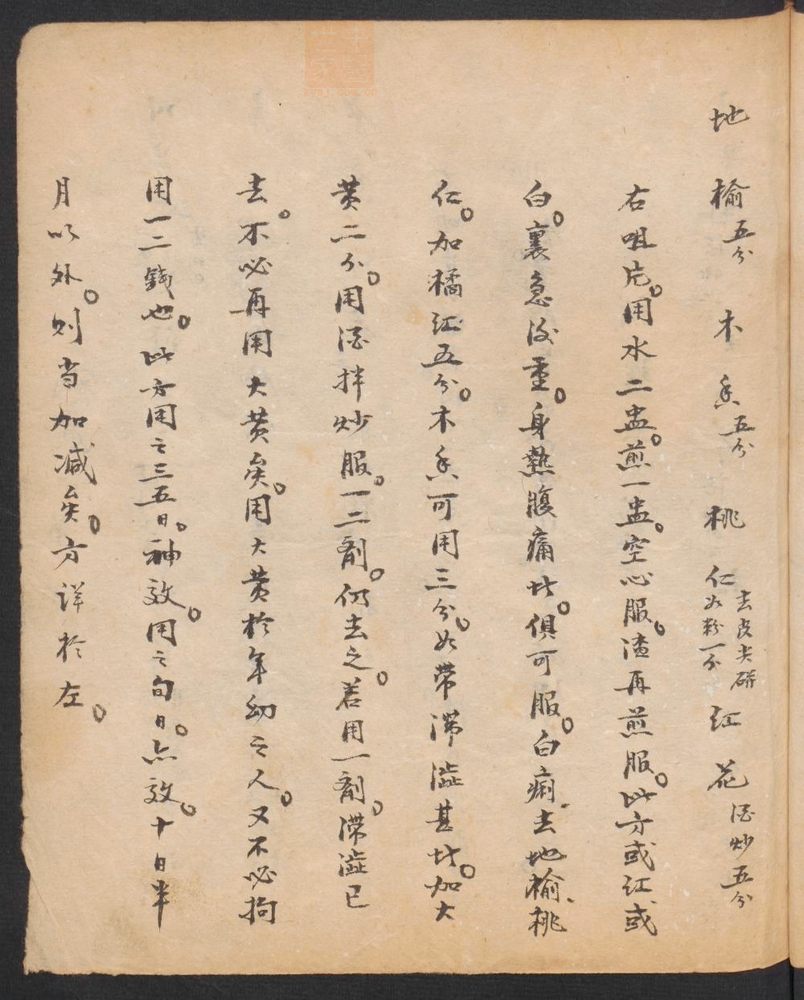 地榆五分 木香五分 桃仁去皮尖研如粉一分 红花酒炒五分
右咀片。用水二盅。煎一盅。空心服。渣再煎服。此方或红或
白。裏急後重。身熱腹痛者。俱可服。白痢、去地榆、桃
仁。加橘红五分。木香可用三分。如带滞澁甚者。加大
黄二分。用酒拌炒服。一二剤。仍去之。若用一剤。滞澁已
去。不必再用大黄矣。用大黄於年幼之人。又不必拘
用一二錢也。此方用之三五日。神效。用之旬日。亦效。十日半
月以外。则当加减矣。方詳於左。